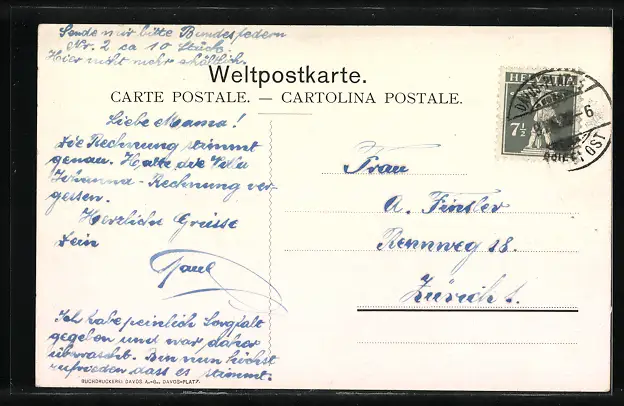 Sende mir bitte Bundesfedern
Nr. 2 ca 10 Stück.
Hier nicht mehr erhältlich.
Weltpostkarte.
CARTE POSTALE. — CARTOLINA POSTALE.
Liebe Mama!
Die Rechnung stimmt
genau. Hatte die Villa
Johanna-Rechnung ver-
gessen.
Herzliche Grüsse
Dein
Paul
Ich habe peinlich Sorgfalt
gegeben und war daher
überrascht. Bin nun höchst
zufrieden dass es stimmt.
BUCHDRUCKEREI DAVOS A.-G., DAVOS-PLATZ.
HELVETIA
7½
Frau
A. Finsler
Rennweg 18.
Zürich 1.